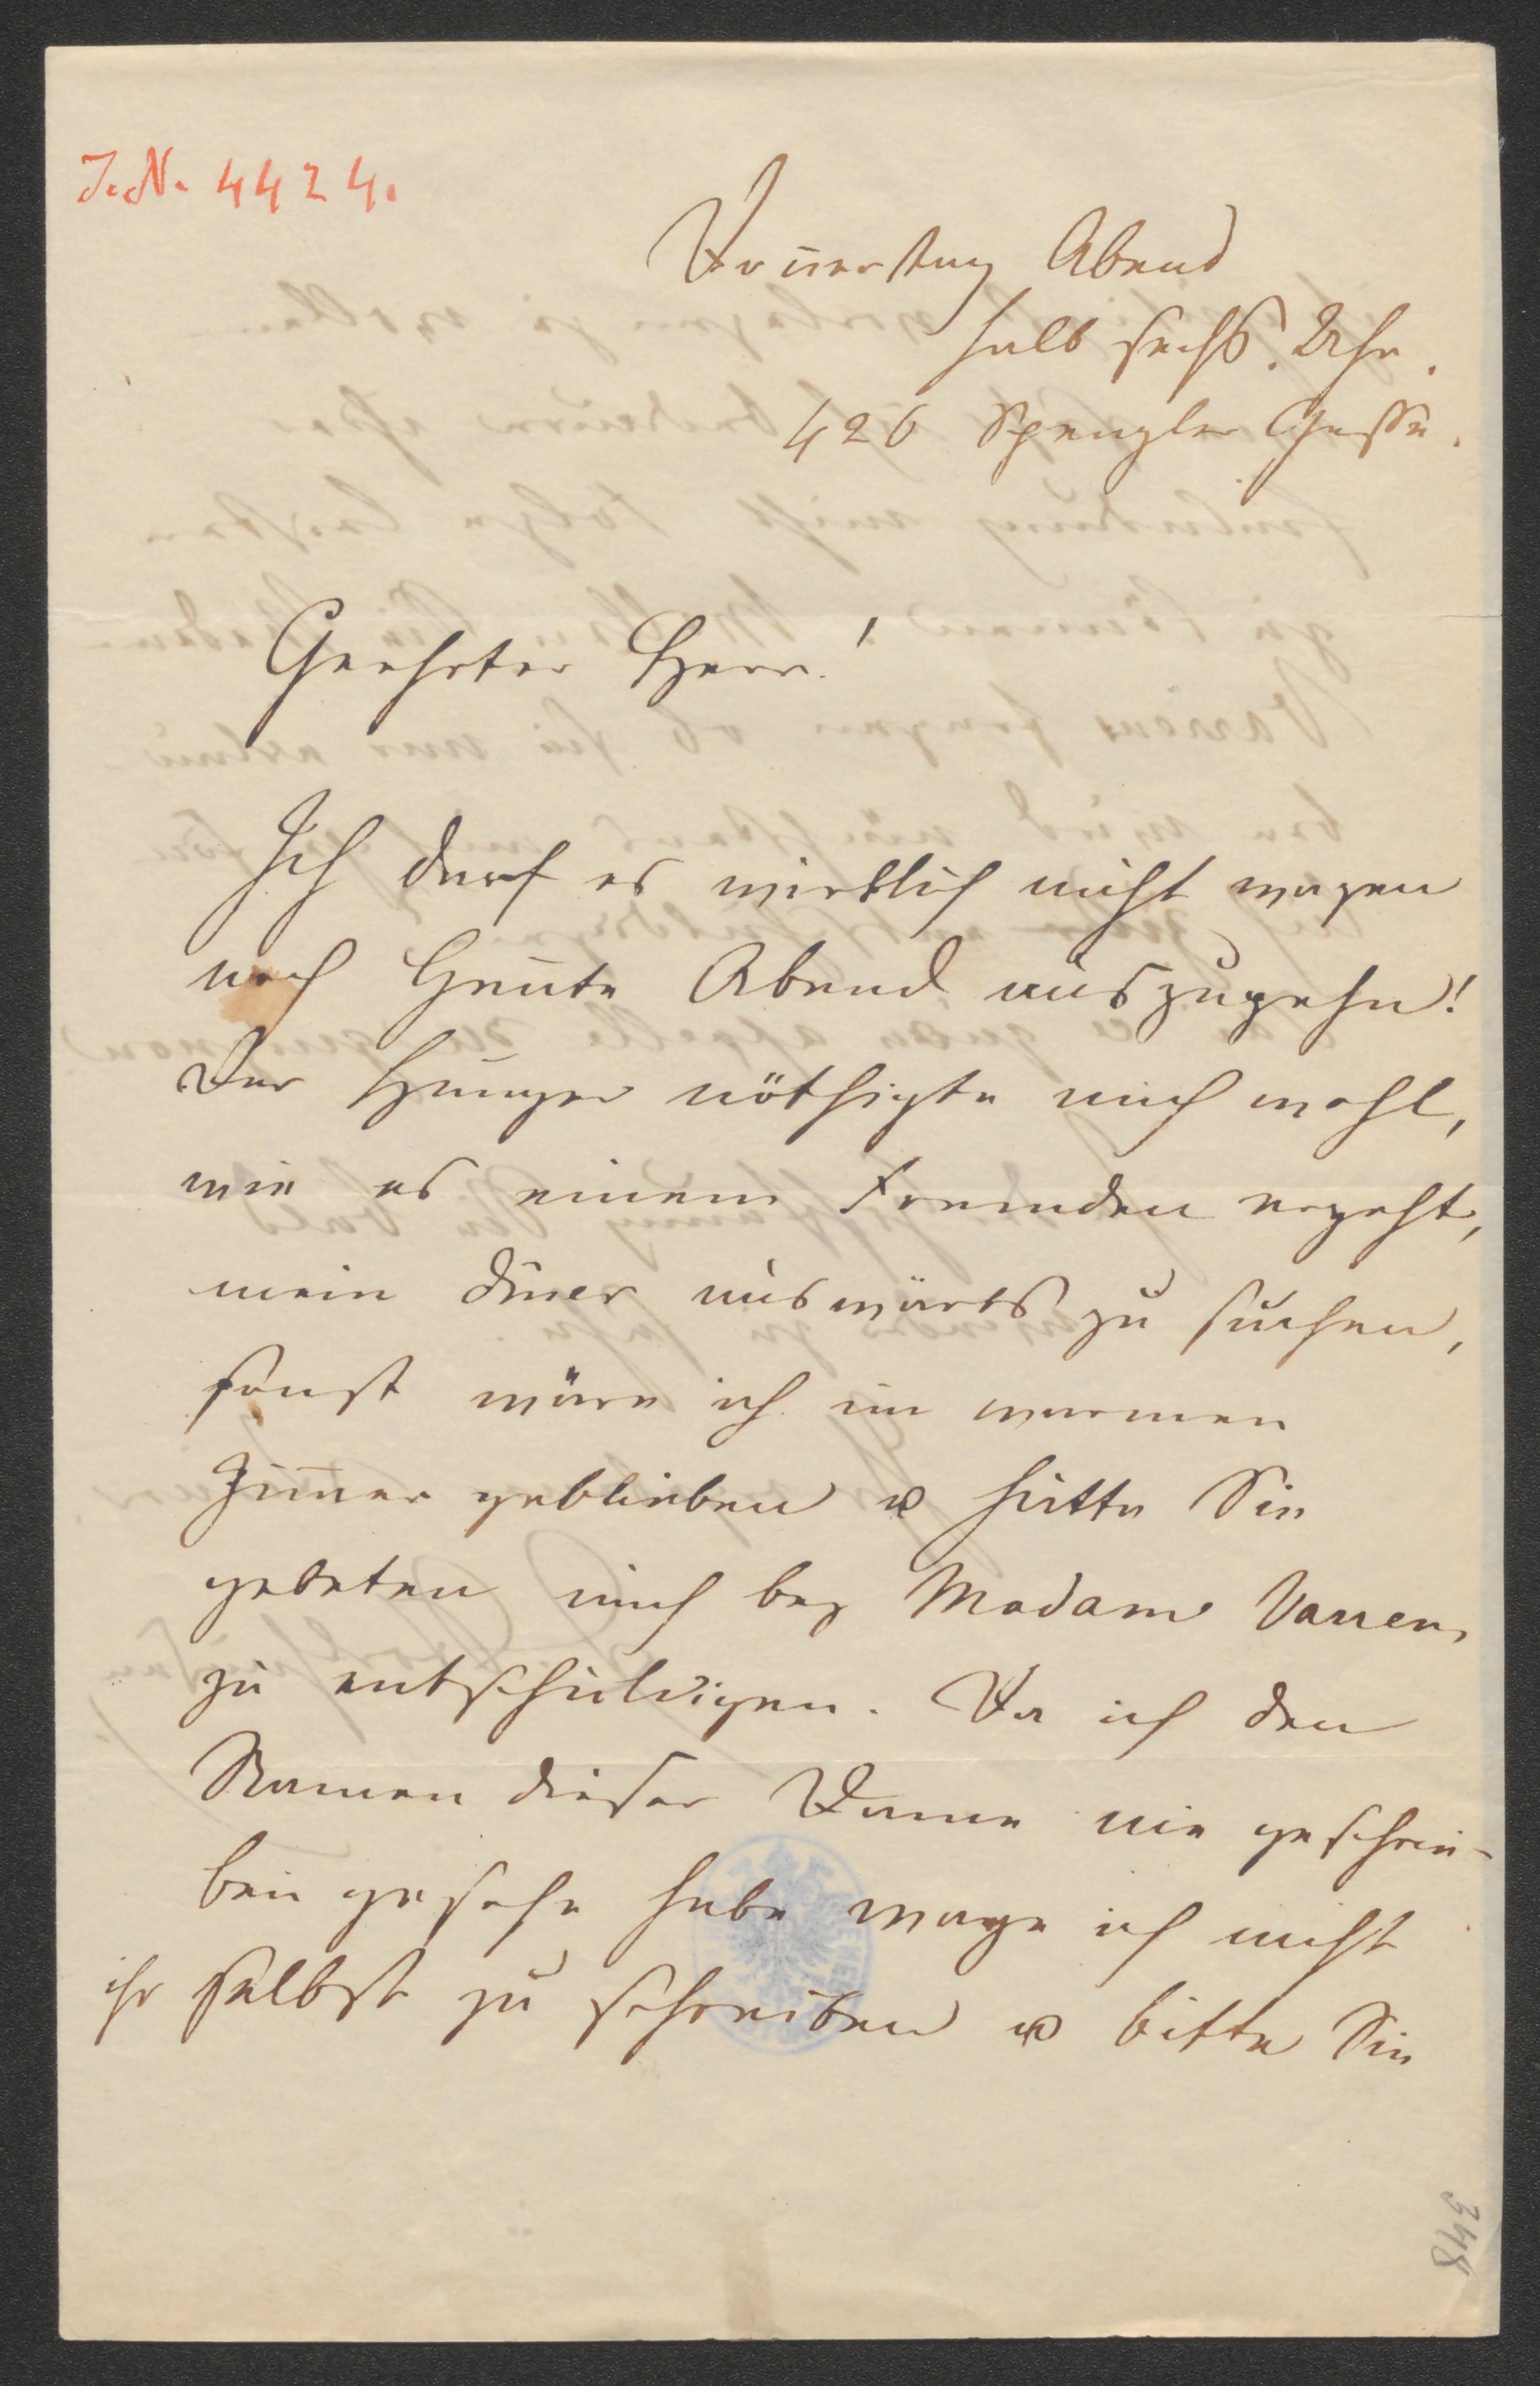 J.N. 4424.
Donerstag Abend
halb sechs. Uhr.
426 Spengler Gasse.
Geehrter Herr!
Ich darf es wirklich nicht wagen
noch heute Abend auszugehn!
Der Hunger nöthigte mich wohl,
wie es einem Fremden ergeht,
mein Diner auswärts zu suchen,
sonst wäre ich im warmen
Zimer geblieben u hätte Sie
gebeten mich bey Madame Varrens
zu entschuldigen. Da ich den
Namen dieser Dame nie geschrie-
ben gesehn habe wage ich nicht
ihr selbst zu schreiben u bitte Sie
348